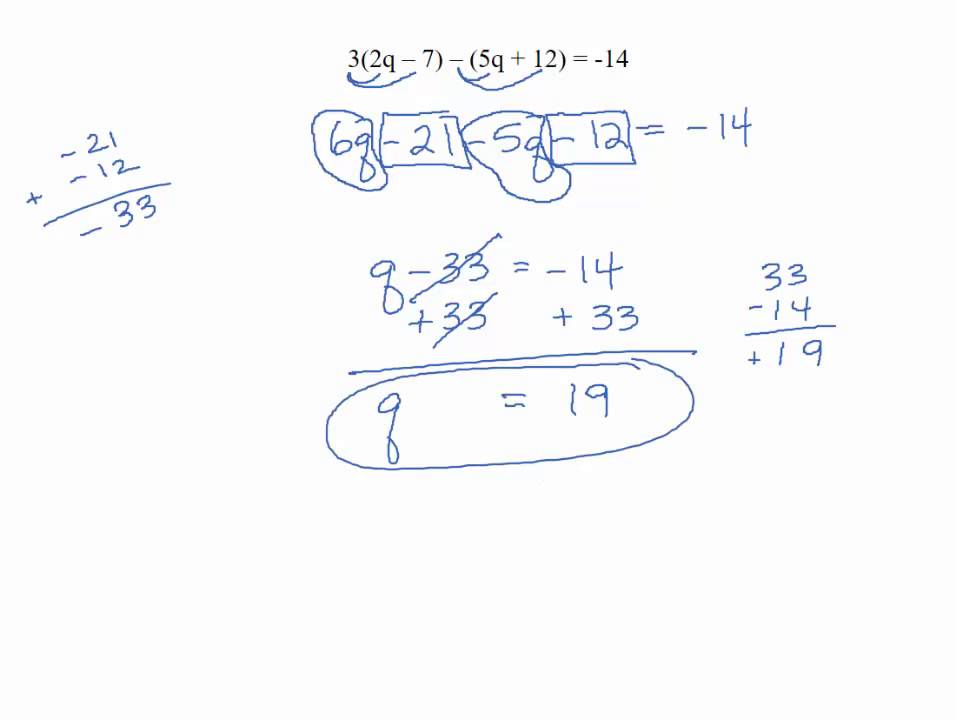 3(2q – 7) – (5q + 12) = -14
6q - 21 - 5q - 12 = - 14
- 21
- 12
+
- 33
q - 33 = - 14
+ 33 + 33
q = 19
33
- 14
+ 19